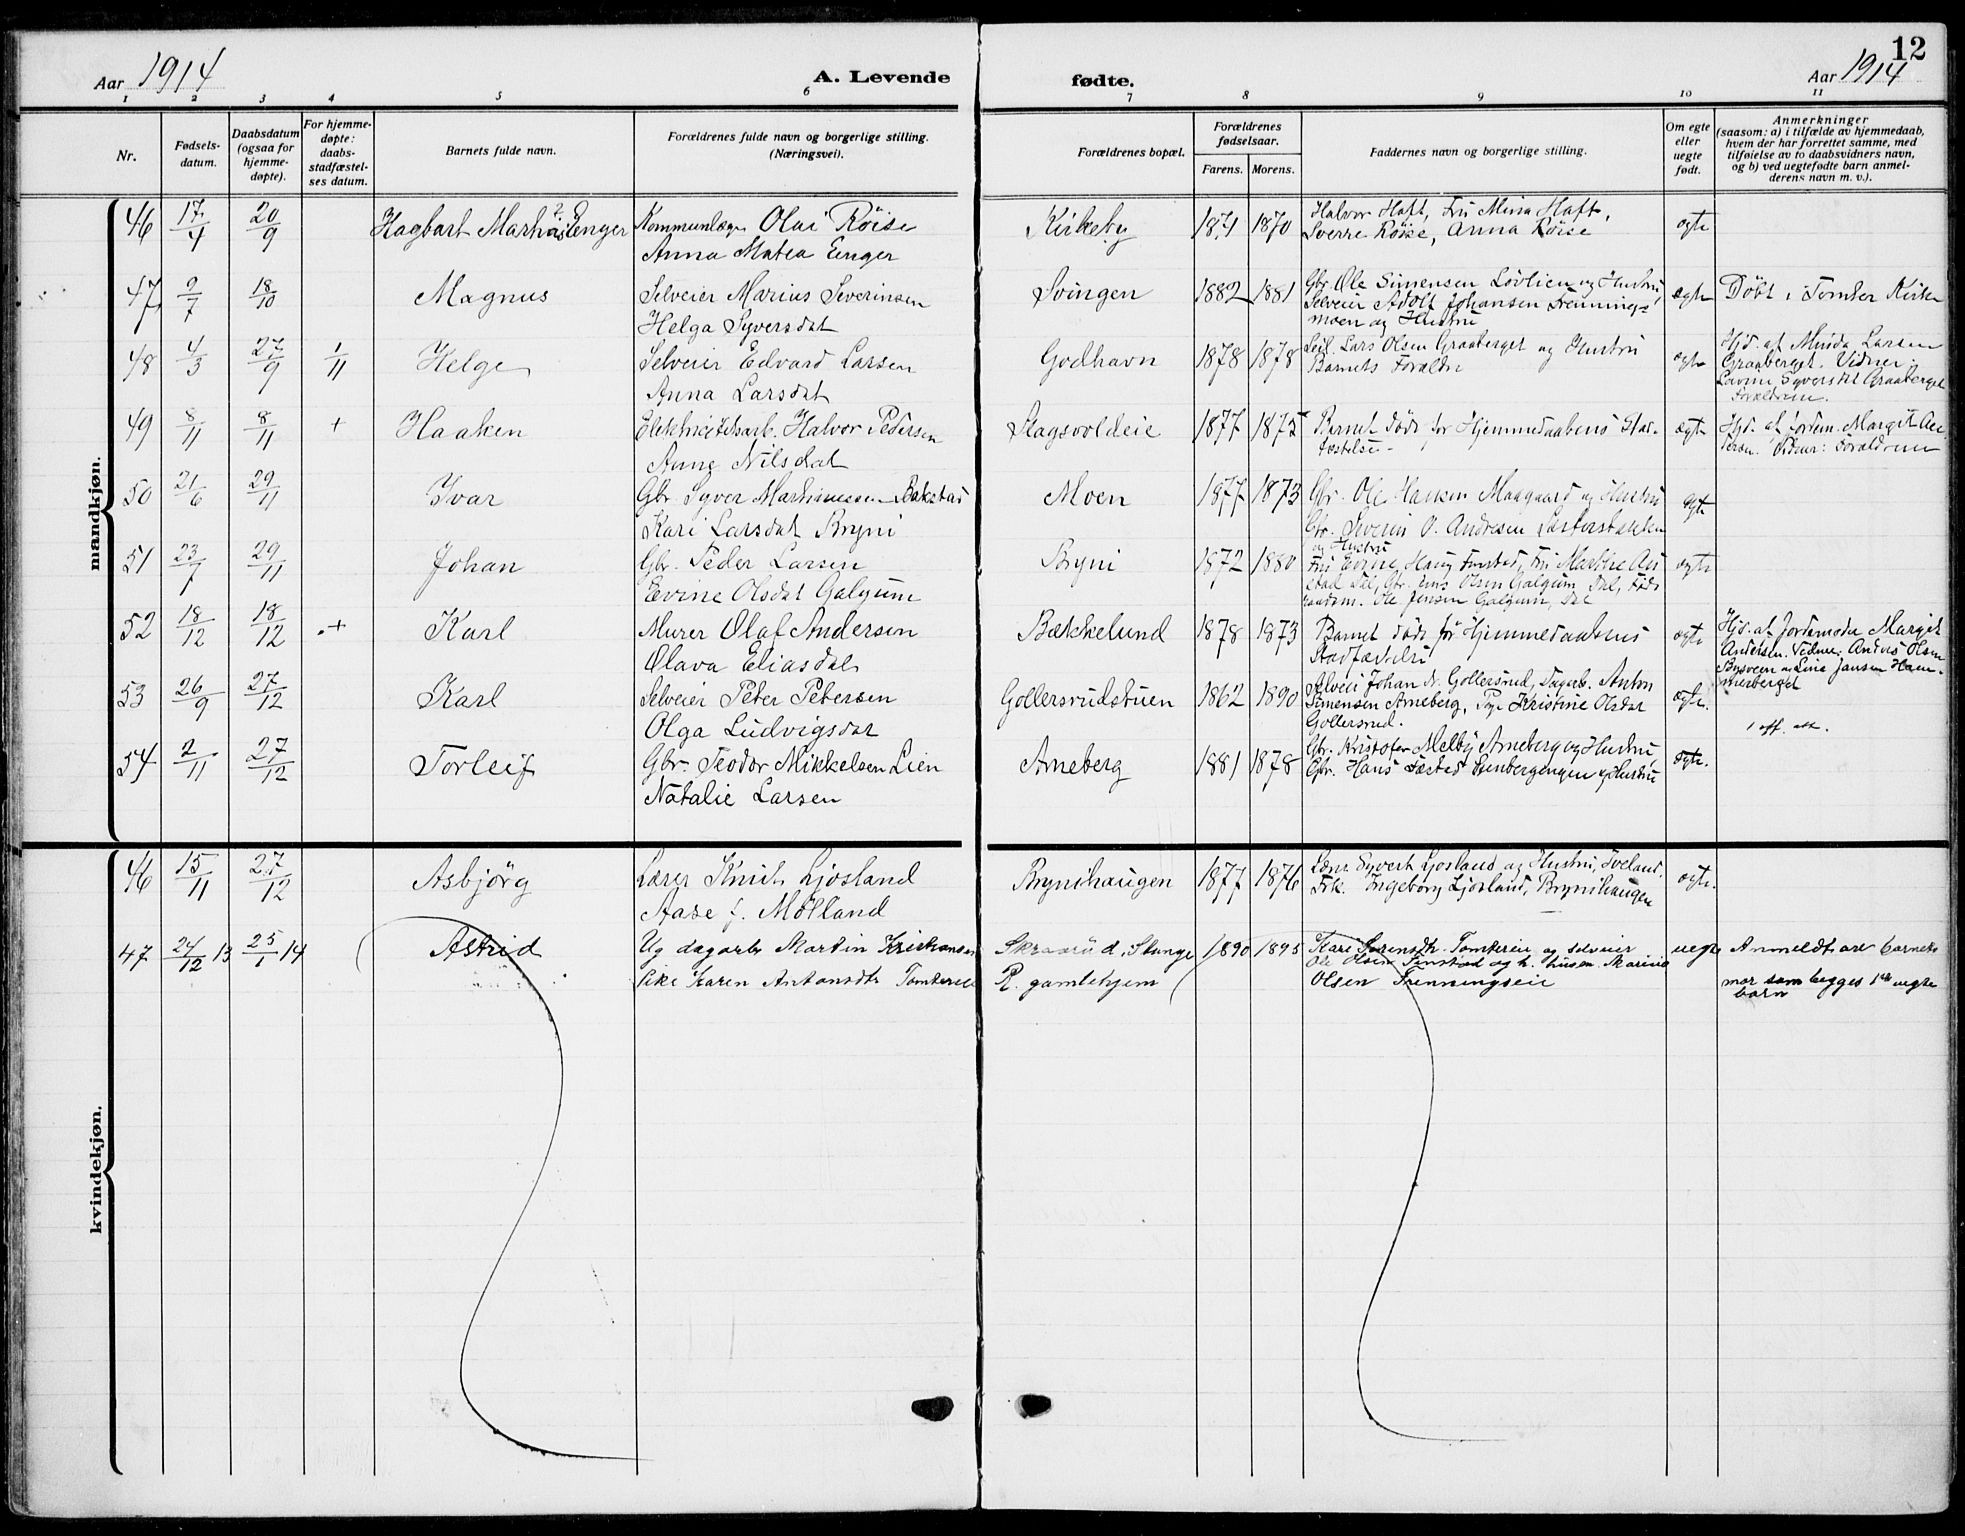 12
Aar 1914 A. Levende fødte. Aar 1914
1 2 3 4 5 6 7 8 9 10 11
Nr.
Fødsels-
datum.
Daabsdatum
(ogsaa for
hjemme-
døpte).
For hjemme-
døpte:
daabs-
stadfæstel-
ses datum.
Barnets fulde navn.
Forældrenes fulde navn og borgerlige stilling.
(Næringsvei).
Forældrenes bopæl.
Forældrenes
fødselsaar.
Farens. Morens.
Faddernes navn og borgerlige stilling.
Om egte
eller
uegte
født.
Anmerkninger
(saasom: a) i tilfælde av hjemmedaab,
hvem der har forrettet samme, med
tilføielse av to daabsvidners navn,
og b) ved uegtefødte barn anmel-
derens navn m. v.).
mandkjøn.
46 17/4 20/9 Hagbart Marhias Enger
Olai Röise
Anna Matea Enger
Kirkeby 1871 1870
Halvor Hoft, Fru Mina Hoft,
Sverre Röise, Anna Röise
egte
47 9/7 18/10 Magnus
Selveier Marius Severinsen
Helga Syversdat
Svingen 1882 1881
Gbr. Ole Simensen Lövlien og Hustru,
Selveier Adolf Johansen Trennings-
moen og Hustru
ægte
Döbt i Tomter Kirke
48 4/3 27/9 1/11 Helge
Selveier Edvard Larsen
Anna Larsdat
Godhavn 1878 1878
Selv. Lars Olsen Graaberget og Hustru
Barnets Foraldre
egte
Hjd. af Minda Larsen
Graaberget. Vidner:
Syversdat Graaberget
Foraldrene.
49 8/11 8/11 + Haaken
Elektricitetsarb. Halvor Pedersen
Anne Nilsdat
Slagsvoldeie 1877 1875
Barnet döde för Hjemmedaabens Stad-
fæstelse.
ægte
Hjd. af Jordem. Margit An-
dersen. Vidner: Foraldrene
50 21/6 29/11 Ivar
Gbr. Syver Martinussen Bakstad
Kari Larsdat Bryni
Moen 1877 1873
Gbr. Ole Hansen Maagaard og Hustru
Gbr. Severin O. Andresen
og Hustru
egte
51 23/7 29/11 Johan
Gbr. Peder Larsen
Evine Olsdat Galgum
Bryni 1872 1880
Fru Evine Haug Finstad, Fru Marthe
Gbr. Jens Olsen Galgum, Dal,
Ole Jensen Galgum, Dal
egte
52 18/12 18/12 + Karl
Murer Olaf Andersen
Olava Eliasdat
Bækkelund 1878 1873
Barnet döde för Hjemmedaabens
Stadfæstelse
egte
Hjd. af Jordemoder Margit
Andersen. Vidner: Anders Olsen
og Lina Jansen Ham-
merberget
53 26/9 27/12 Karl
Selveier Peter Petersen
Olga Ludvigsdat
Gollersrudstuen 1862 1890
Selveier Johan N. Gollersrud, Dagarb. Anton
Simensen Arneberg, Pige Kristine Olsdat
Gollersrud.
ægte.
54 2/11 27/12 Torleif
Gbr. Teodor Mikkelsen Lien
Natalie Larsen
Arneberg 1881 1878
Gbr. Kristofer Melby Arneberg og Hustru,
Gbr. Hans Fæsted Stenbergengen og Hustru
ægte.
kvindekjøn.
46 15/11 27/12 Asbjörg
Lærer Knut Ljosland
Aase f. Mölland
Brynihaugen 1877 1876
Lærer Syvert Ljosland og Hustru, Iveland,
Frk. Ingeborg Ljosland, Brynihaugen
egte.
47 24/12 13 25/1 14 Astrid
Ug dagarb Martin Kristiansen
Pike Karen Antonsdtr Tomtereie
Skraarud, Slunge
R. gamlehjem
1890 1895
Kari Sörensdtr. Tomtereie og selveier
Ole Olsen Finstad og h. husm. Marinie
Olsen Trenningseie
uegte
Anmeldt av barnets
mor som begges 1ste uegte
barn